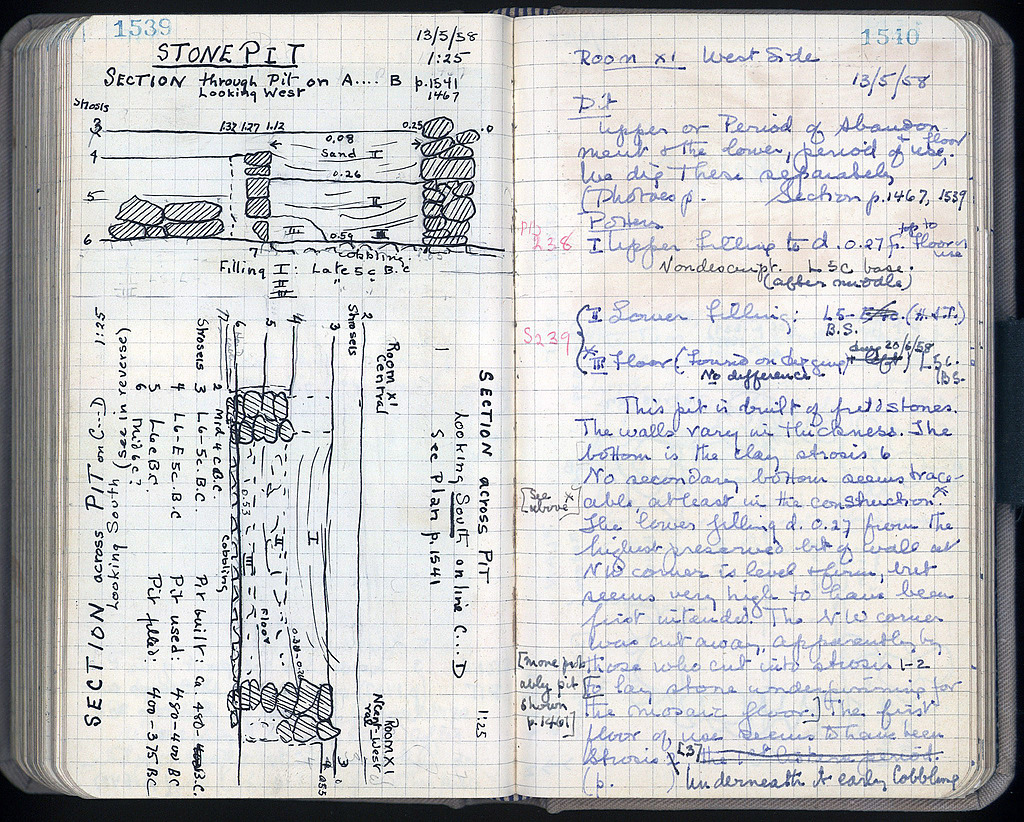 1539
STONE PIT
13/5/58
1:25
SECTION through Pit on A....B p.1541
Looking West 1467
Strosis
3
1.32 1.27 1.12
0.25
.0
0.08
4
Sand I
0.26
5
II
III
0.59
6
7
Cobbling
Filling I: Late 5c B.C
II " "
III
SECTION across PIT
Looking South on line C...D
See Plan p.1541
1:25
Room XI
Central
Room XI
West
Strosels
2
3
4
5
6
7
I
II
III
0.53
Floor
Cobbling
3
4
0.55
Strosels 2 Mid 4c B.C.
3 L6-5c. B.C
4 L6-E5c. B.C
5 L6c B.C.
6 Mid 6c?
Pit built: ca. 480- B.C.
Pit used: 480-400 BC
Pit filled: 400-375 BC
SECTION across PIT on C...D 1:25
Looking South (see in reverse)
1540
Room XI West Side
13/5/58
Pit
Upper or Period of Abandon
ment & the lower, period of use. floor
We dig these separately
(Photos p. Section p.1467, 1539
Pottery
238
I Upper Filling to d. 0.27 f. up to floor use
Nondescript. L5C base.
(after middle)
S239
II Lower filling: L5- (H.&P.)
B.S.
dug 20/6/58
x III Floor (Found on digging L5c.
No difference (BS-
This pit is built of fieldstones.
The walls vary in thickness. The
bottom is the clay strosis 6
No secondary bottom seems trace-
[See above x]
able, at least in the construction x
The lower filling d. 0.27 from the
highest preserved bit of wall at
NW corner is level & firm, but
seems very high to have been
first intended. The NW corner
was cut away, apparently by
[more prob
ably pit
shown
p.1461]
those who cut into strosis 1-2
to lay stone underpinning for
the mosaic floor.] The first
floor of use seems to have been
Strosis [3]
(p. ) Underneath it early Cobbling